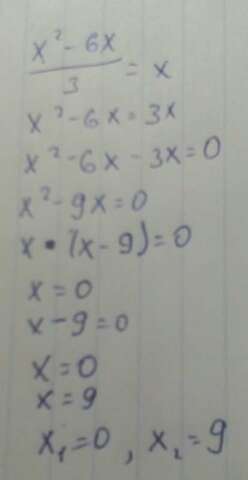 x² - 6x / 3 = x
x² - 6x = 3x
x² - 6x - 3x = 0
x² - 9x = 0
x • (x - 9) = 0
x = 0
x - 9 = 0
x = 0
x = 9
x₁ = 0 , x₂ = 9